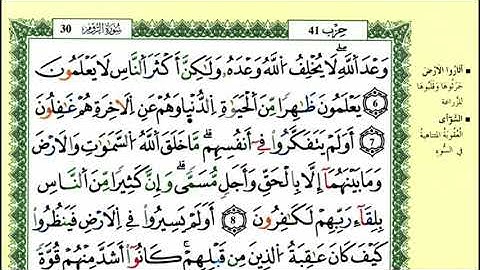 30
سُورَةُ الرُّومِ
حِزْب 41
وَعْدَ اَ۬للَّهِ لَا يُخْلِفُ اُ۬للَّهُ وَعْدَهُۥ وَلَٰكِنَّ أَكْثَرَ اَ۬لنَّاسِ لَا يَعْلَمُونَ
6 يَعْلَمُونَ ظَٰهِرٗا مِّنَ اَ۬لْحَيَوٰةِ اِ۬لدُّنْيَا وَهُمْ عَنِ اِ۬لَاخِرَةِ هُمْ غَٰفِلُونَ
7 أَوَلَمْ يَتَفَكَّرُواْ فِےٓ أَنفُسِهِم مَّا خَلَقَ اَ۬للَّهُ اُ۬لسَّمَٰوَٰتِ وَالَارْضَ
وَمَا بَيْنَهُمَآ إِلَّا بِالْحَقِّ وَأَجَلٖ مُّسَمّيٗ وَإِنَّ كَثِيرٗا مِّنَ اَ۬لنَّاسِ
بِلِقَآءِےْ رَبِّهِمْ لَكَٰفِرُونَ 8 أَوَلَمْ يَسِيرُواْ فِے اِ۬لَارْضِ فَيَنظُرُواْ
كَيْفَ كَانَ عَٰقِبَةُ اُ۬لذِينَ مِن قَبْلِهِمْ كَانُوٓاْ أَشَدَّ مِنْهُمْ قُوَّةٗ
■ أَثَارُوا الاَرْضَ
حَرَثُوهَا وَقَلَبُوهَا
لِلزِّرَاعَة
■ السُّوأَى
العُقُوبَةُ المُتَنَاهِيَةُ
فِي السُّوءِ